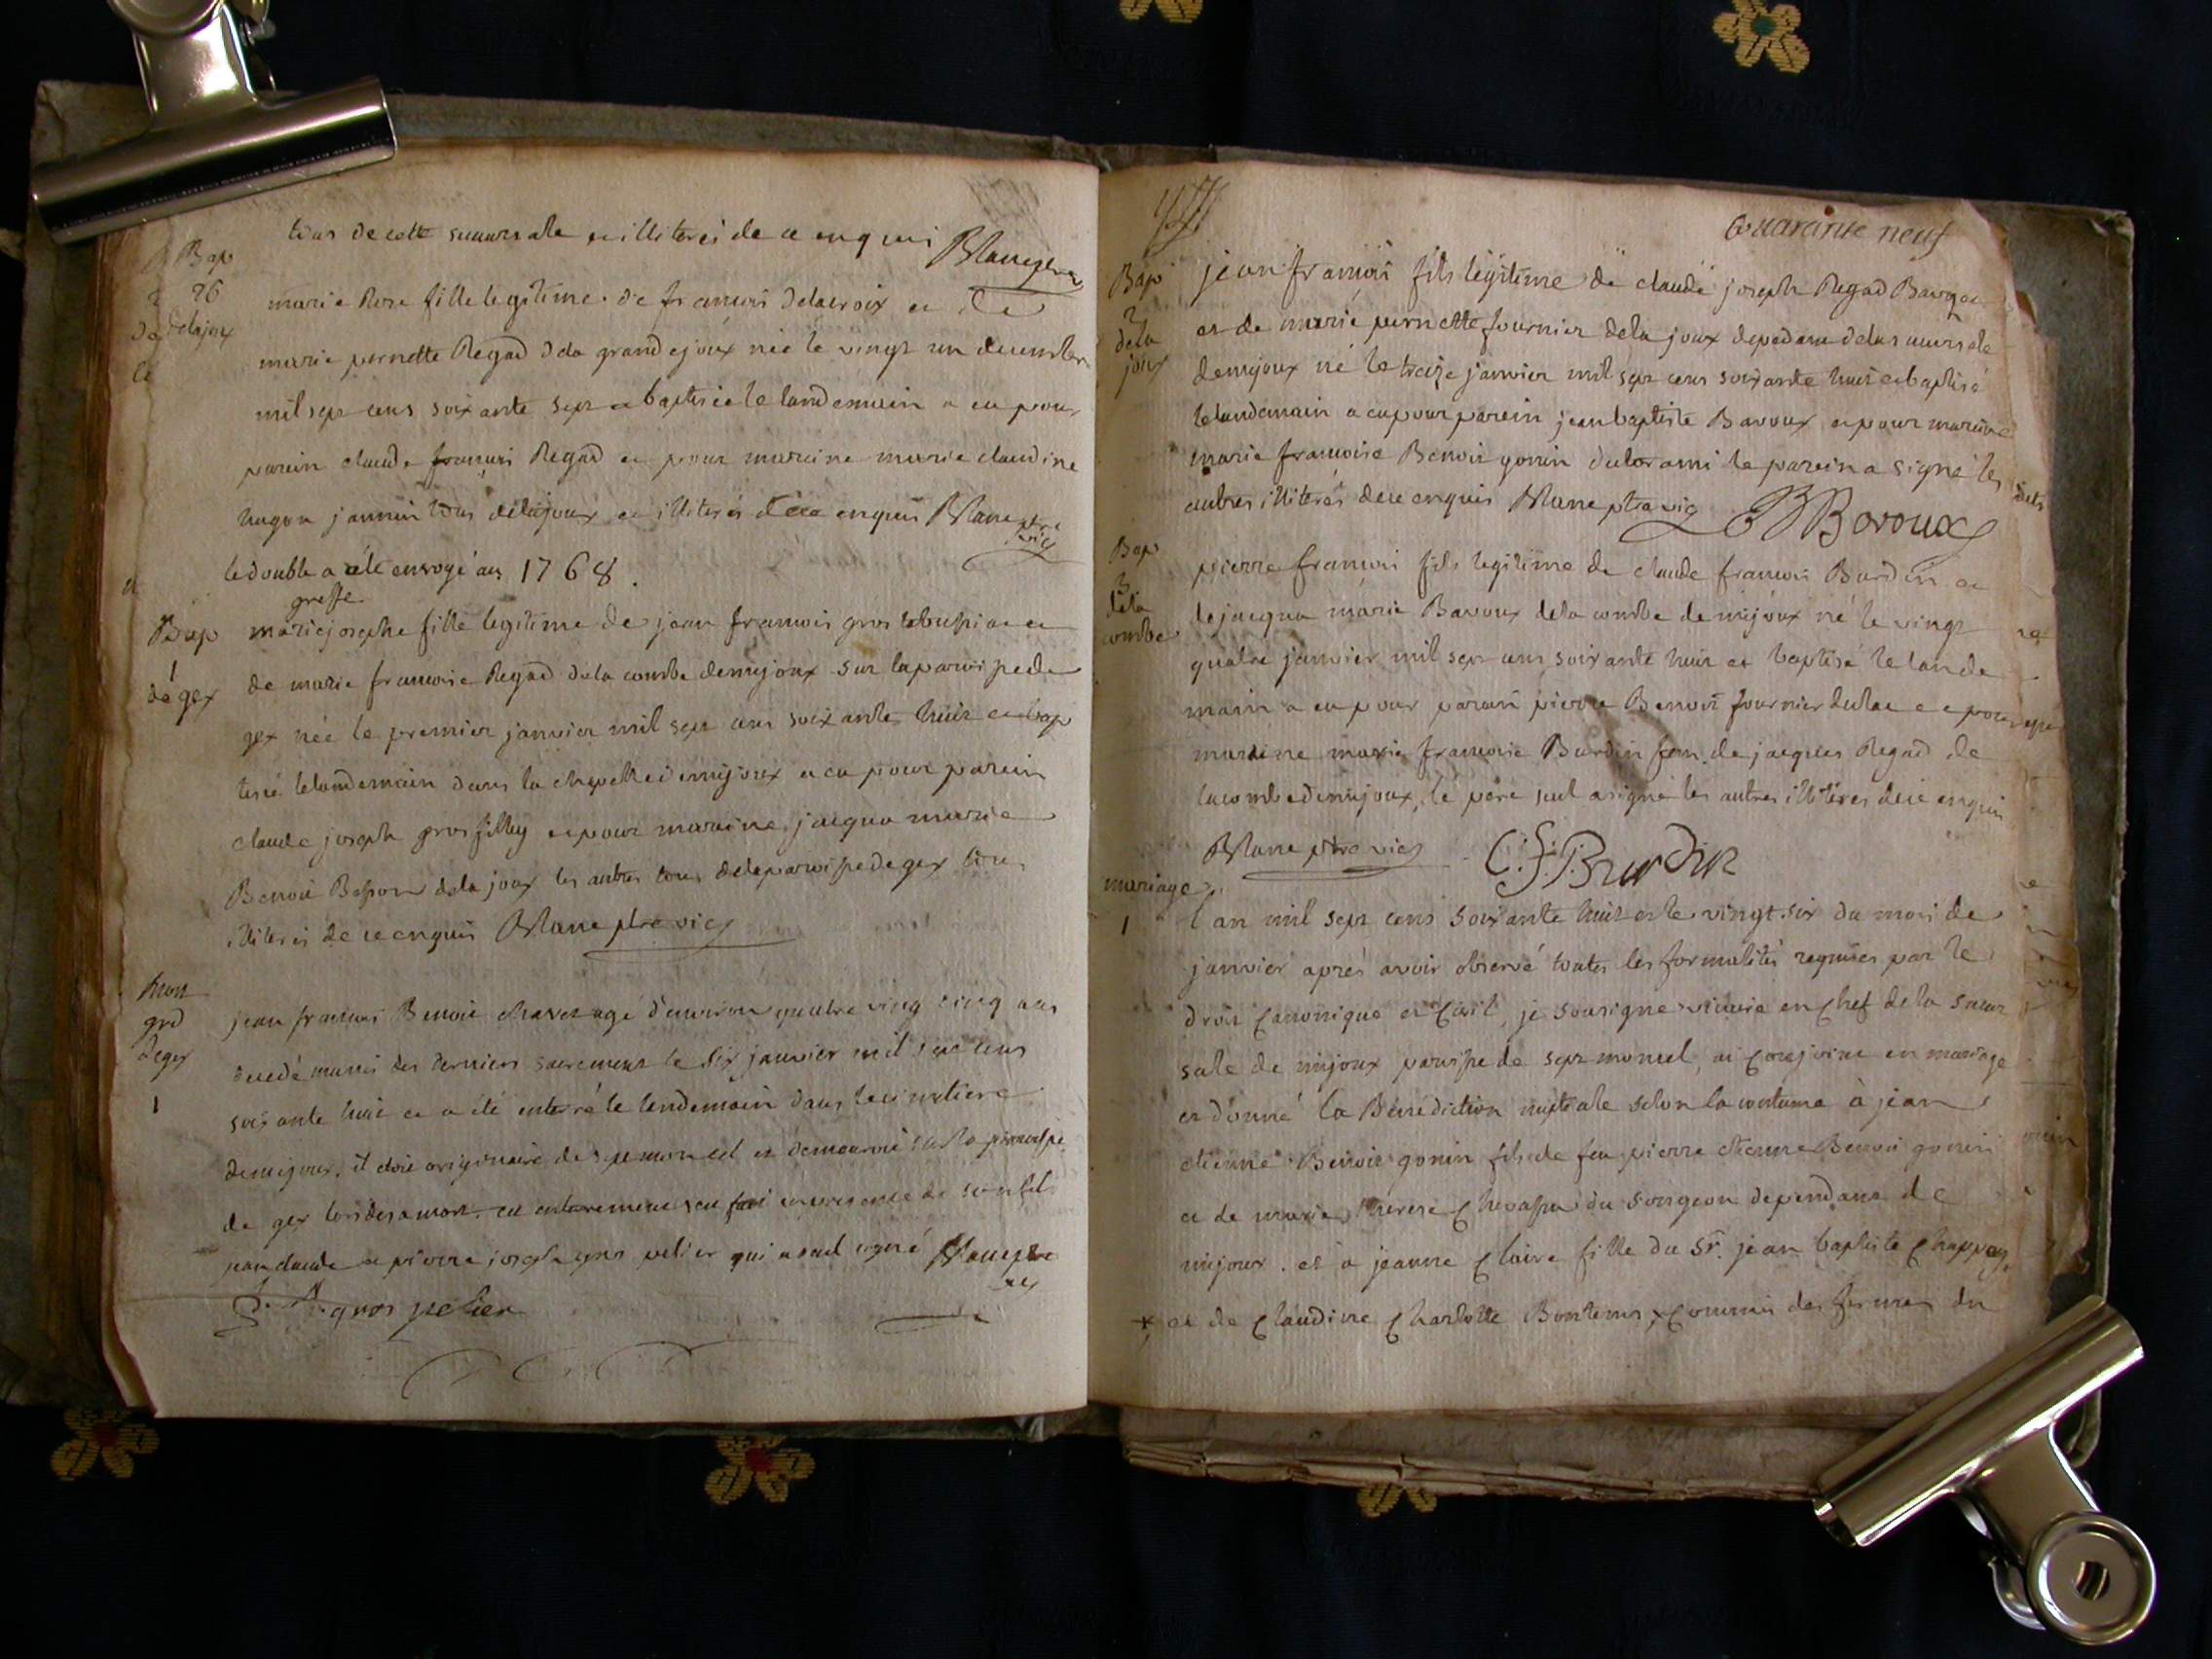 tous de cette succursale et illiterés de ce enquis Blanc ptre
Bap
26
delajoux
marie Rose fille legitime de francois delacroix et de
marie pernette Regad dela grande joux née le vingt un decembre
mil sept cens soixante sept et baptisée le landemain a eu pour
parein claude francois Regad et pour mareine marie claudine
hugon jannin tous delajoux et illiterés de ce enquis Blanc ptre
vic
le double a été envoyé au 1768.
greffe
Bap
1
de gex
marie josephe fille legitime de jean francois gros et
de marie francoise Regad dela combe demijoux sur la paroisse de
gex née le premier janvier mil sept cens soixante huit et bap
tisée le landemain dans la chapelle de mijoux a eu pour parein
claude joseph gros filley et pour mareine jacqua marie
Benoit dela joux les autres tous dela paroisse de gex tous
illiterés de ce enquis Blanc ptre vic
mort
grd
de gex
1
jean francois Benoit agé d'environ quatre ving cinq ans
decedé munis des derniers sacremens le six janvier mil sept cens
soixante huit et a été enterré le lendemain dans le cimetiere
demijoux, il etoit originaire de septmoncel et demeuroit sur la paroisse
de gex lors de sa mort. cet enterrement seu fait en presence de son fils
jean claude et pierre joseph gros pelier qui a seul signé Blanc ptre
vic
gros pelier
Quarante neuf
Bap
2
dela
joux
jean francois fils legitime de claude joseph Regad
et de marie pernette fournier dela joux dependant dela succursale
demijoux né le treize janvier mil sept cens soixante huit et baptisé
le landemain a eu pour parein jean baptiste Bavoux et pour mareine
marie francoise Benoit gonin le parein a signé les
autres illiterés de ce enquis Blanc ptre vic JB Bavoux
Bap
3
dela
combe
pierre francois fils legitime de claude francois Burdin et
de jacqua marie Bavoux dela combe demijoux né le vingt
quatre janvier mil sept cens soixante huit et baptisé le lande
main a eu pour parain pierre Benoit fournier dulac et pour
mareine marie francoise Burdin fem. de jacques Regad de
la combe demijoux, le père seul a signé les autres illiteres de ce enquis
Blanc ptre vic C. f. Burdin
mariage
1
l'an mil sept cens soixante huit et le vingt six du mois de
janvier aprés avoir observé toutes les formalités requises par le
droit Canonique et Civil, je sousigné vicaire en Chef de la succur
sale de mijoux paroisse de sept moncel, ai Conjoint en mariage
et donné la Bénédiction nuptiale selon la coutume à jean
etienne Benoit gonin fils de feu pierre etienne Benoit gonin
et de marie therese Chevassu du songeon dependant de
mijoux. et à jeanne Claire fille du Sr. jean baptiste Chappuy
et de Claudine Charlotte Bontems, Commis des fermes du